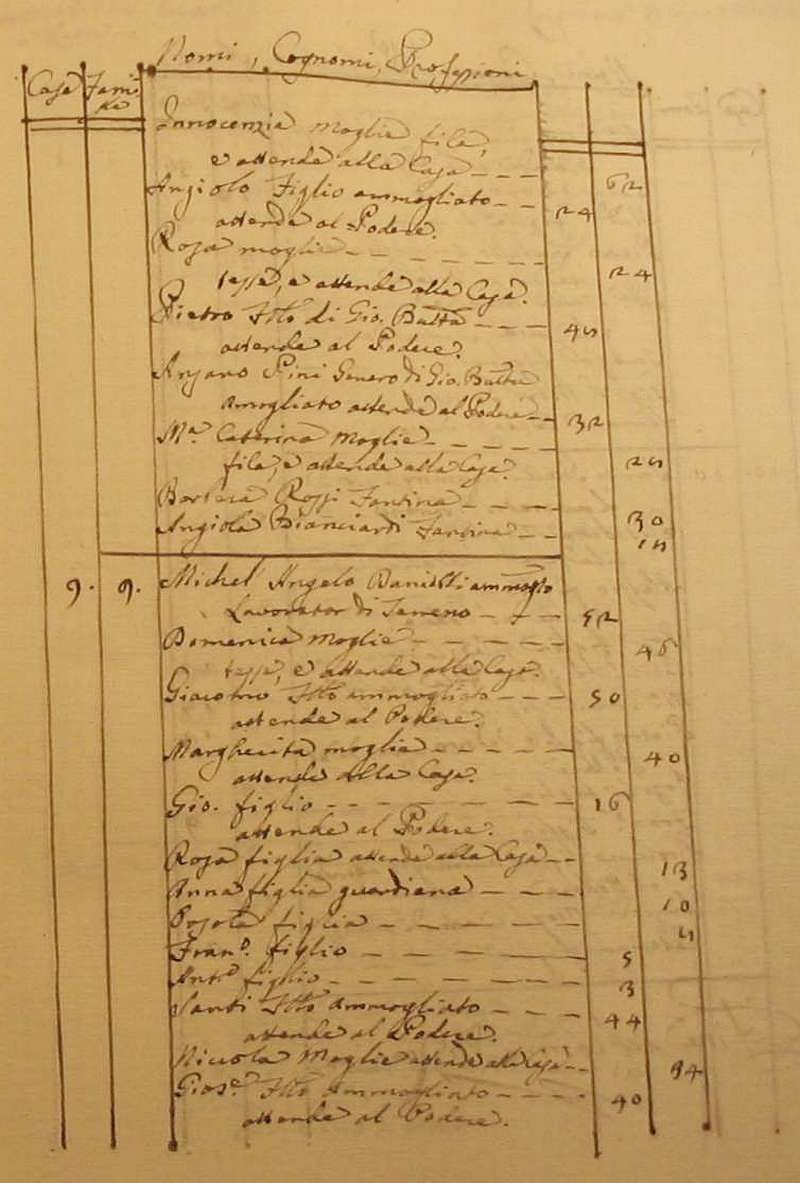 Nomi, Cognomi, Professioni
Case Fami
lie
Innocenzia Moglie fila,
e attende alla Casa - - - 62
Angiolo Figlio ammogliato - - 24
attende al Podere.
Rosa moglie - - - - - - 24
tesse, e attende alla Casa.
Pietro Ftlo di Gio. Batta - - - 45
attende al Podere.
Pini Genero di Gio. Batta
Amogliato attende al Podere - - 32
Ma. Caterina Moglie - - - - 25
fila, e attende alla Casa.
Barbera Rossi Fantina - - - - 30
Angiola Bianciardi Fantina - - 15
9. 9. Michel Angelo ammogto
Lavorator di Terreno - - - 52
Domenica Moglie - - - - - 46
tesse, e attende alla Casa.
Giacomo Ftlo ammogliato - - - 50
attende al Podere.
Margherita moglie - - - - - 40
attende alla Casa.
Gio. figlio - - - - - - 16
attende al Podere.
Rosa figlia attende alla Casa - - 13
Anna figlia guardiana - - - - 10
figlia - - - - - 5
Frano. figlio - - - - - 5
Anto figlio - - - - - - 3
Santi Ftlo Ammogliato - - - - 44
attende al Podere.
Niccola Moglie attende alla Casa - - 34
Giose. Ftlo Ammogliato - - - - 40
attende al Podere.